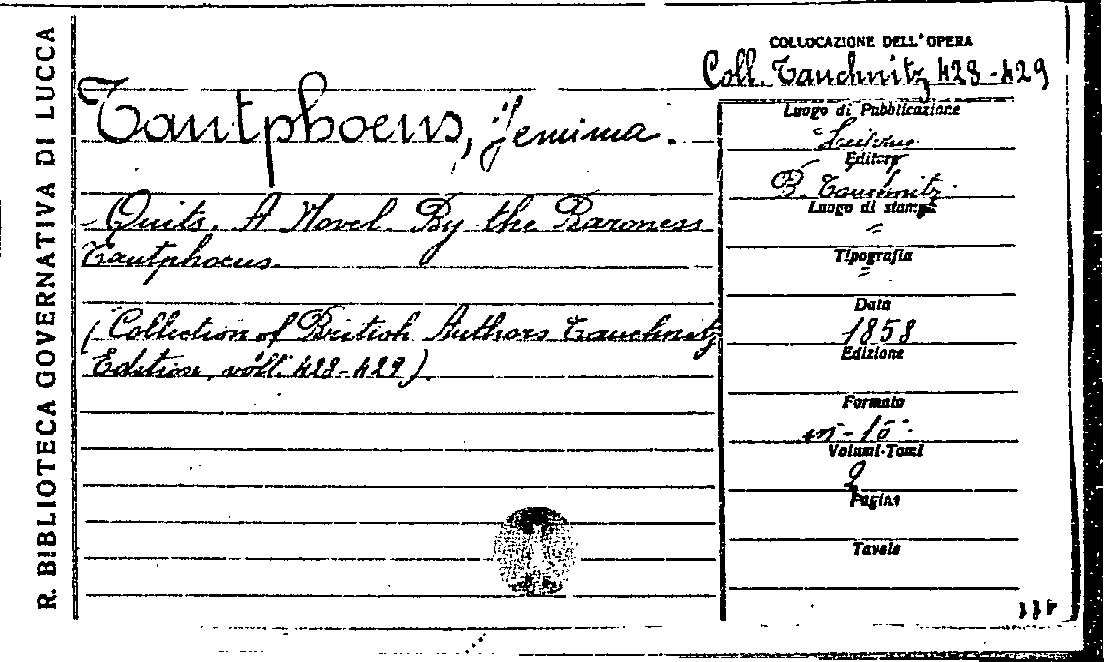 R. BIBLIOTECA GOVERNATIVA DI LUCCA
COLLOCAZIONE DELL'OPERA
Coll. Tauchnitz 428-429
Tautphoeus, Jemima.
Quits. A Novel. By the Baroness
Tautphoeus.
(Collection of British Authors Tauchnitz
Edition, voll. 428-429).
Luogo di Pubblicazione
Editore
B. Tauchnitz
Luogo di stampa
=
Tipografia
=
Data
1858
Edizione
Formato
in-16°
Volumi-Tomi
2
Pagine
Tavole